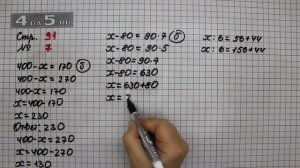 Стр. 91
№ 7
400-x=170 б
400-x=270
400-x=170
x=400-170
x=230
Ответ: 230
400-x=270
x=400-270
x=130
x-80=90·7 б
x-80=90·5
x-80=90·7
x-80=630
x=630+80
x=
x:6=56+44
x:6=156+44